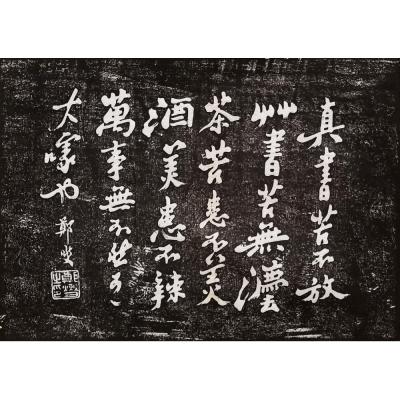 真書苦不放
艸書苦無灋
茶苦患不美
酒美患不辣
萬事無不可
大噱也 鄭燮